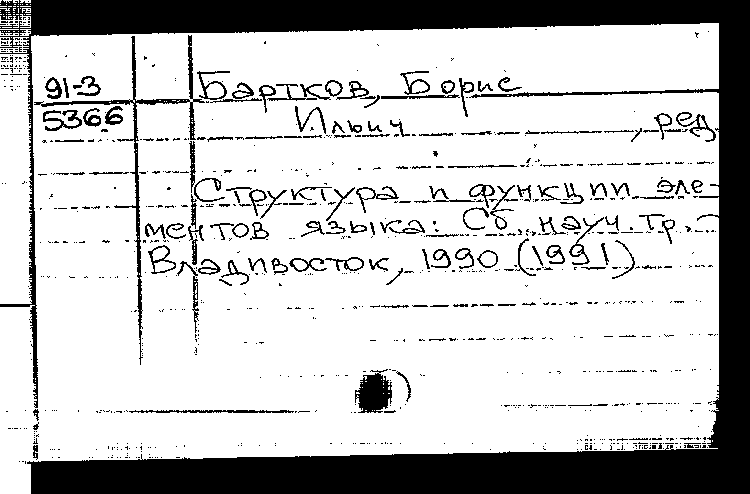 91-3 Бартков, Борис
5366 Ильич , ред.
Структура и функции эле-
ментов языка: Сб. науч. тр. –
Владивосток, 1990 (1991)